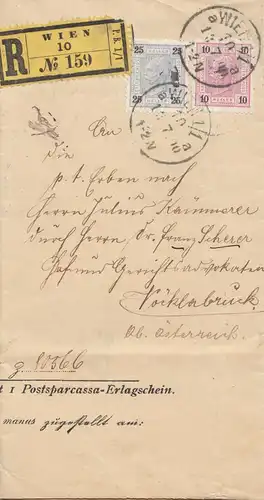 WIEN
10
R
№ 159
F.k.1/1
25 25
10 10
WIEN 1/1
An
die
p. t. Erben nach
Herrn Julius Kammerer
durch Herrn Dr. Franz Scherer
Hof und Gerichtsadvokaten
Vöcklabruck
Ob. Österreich.
z. 80566
t 1 Postsparcassa-Erlagschein.
manus zugestellt am: